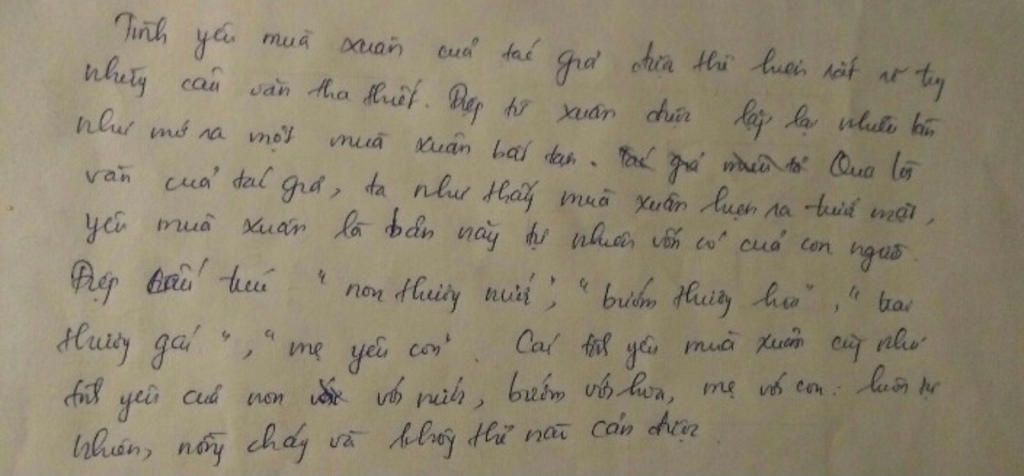 Tình yêu mùa xuân của tác giả được thể hiện rất rõ từ
những câu văn tha thiết. Điệp từ xuân được lặp lại nhiều lần
như mở ra một mùa xuân bất tận. Qua lời
văn của tác giả, ta như thấy mùa xuân hiện ra trước mặt,
yêu mùa xuân là bản này tự nhiên vốn có của con người.
Điệp cấu trúc "non thương nước", "bướm thương hoa", "trai
thương gái", "mẹ yêu con". Cái tình yêu mùa xuân cũng như
tình yêu của non với nước, bướm với hoa, mẹ với con: luôn tự
nhiên, nồng cháy và không thể nào cản được.